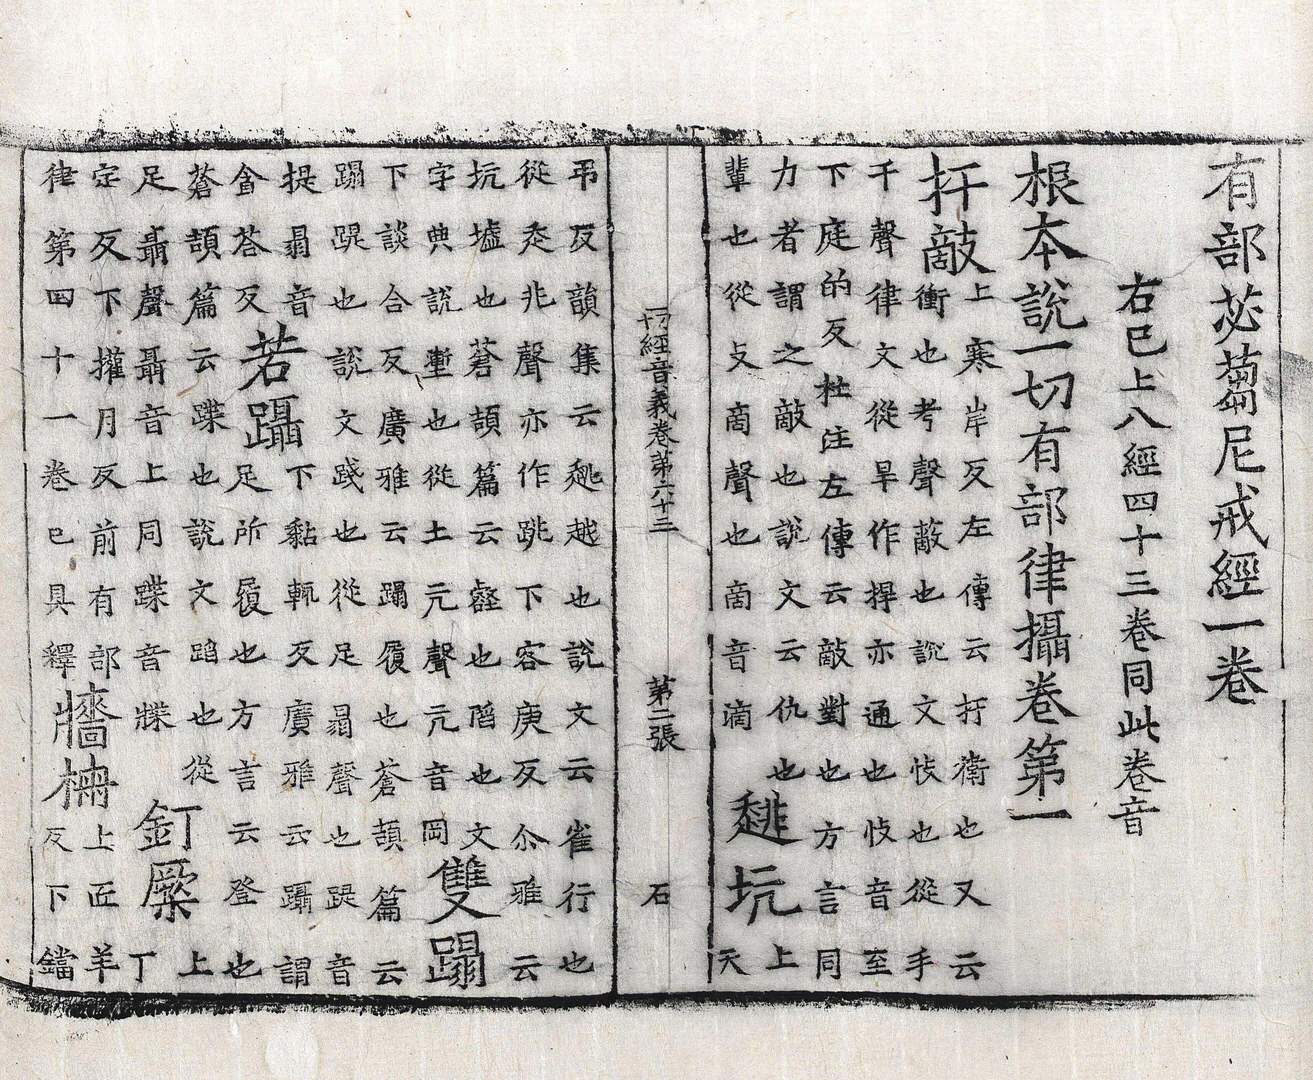 有部苾蒭尼戒經一卷
右已上八經四十三卷同此卷音
根本說一切有部律攝卷第一
扞敵
上寒岸反左傳云扞衛也又云
衝也考聲蔽也說文忮也從手
干聲律文從旱作捍亦通也忮音至
下庭的反杜注左傳云敵對也方言同
力者謂之敵也說文云仇也
輩也從攴啇聲也啇音滴
趒坑
上
天
一切經音義卷第六十三 第二張 石
弔反韻集云趒越也說文云雀行也
從走兆聲亦作跳下客庚反尒雅云
坑墟也蒼頡篇云壑也陷也文
字典說塹也從土亢聲亢音岡
雙蹋
下談合反廣雅云蹋履也蒼頡篇云
蹋踶也說文踐也從足𦐇聲也踶音
提𦐇音
盦荅反
若躡
下黏輒反廣雅云躡謂
足所履也方言云登也
蒼頡篇云蹀也說文蹈也從
足聶聲聶音上同蹀音牒
釘橛
上
丁
定反下權月反前有部
律第四十一卷已具釋
牆柵
上匠羊
反下鐺